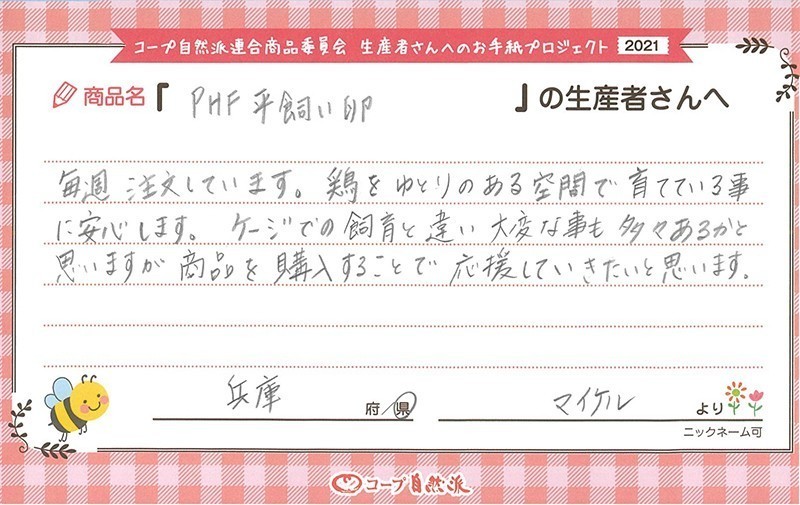 コープ自然派連合商品委員会 生産者さんへのお手紙プロジェクト 2021
商品名『 PHF平飼い卵 』の生産者さんへ
毎週 注文しています。鶏をゆとりのある空間で育てている事
に安心します。ケージでの飼育と違い大変な事も多々あるかと
思いますが商品を購入することで応援していきたいと思います。
兵庫 府 県 マイケル より
ニックネーム可
コープ自然派